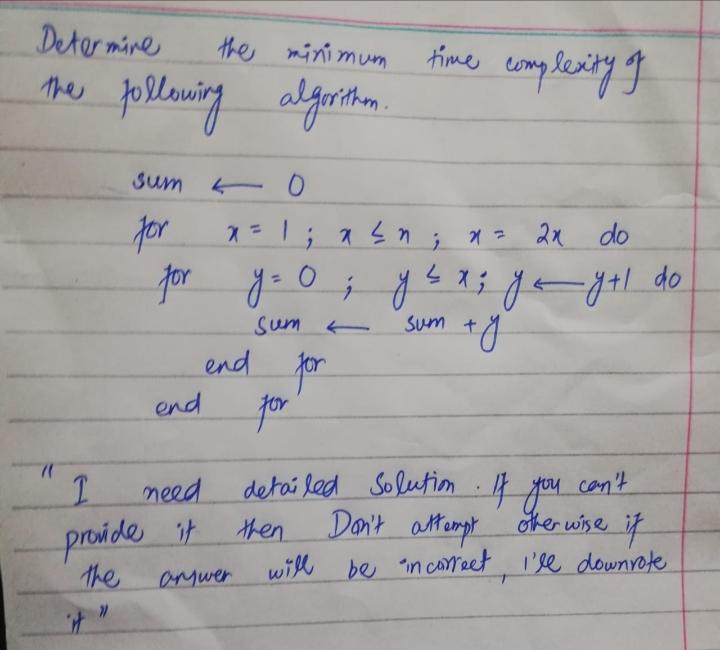 Determine the minimum time complexity of
the following algorithm.
sum ← 0
for x = 1 ; x ≤ n ; x = 2x do
for y = 0 ; y ≤ x ; y ← y+1 do
sum ← sum + y
end for
end for
" I need detailed Solution . If you can't
provide it then Don't attempt otherwise if
the answer will be incorrect, i'll downvote
it "